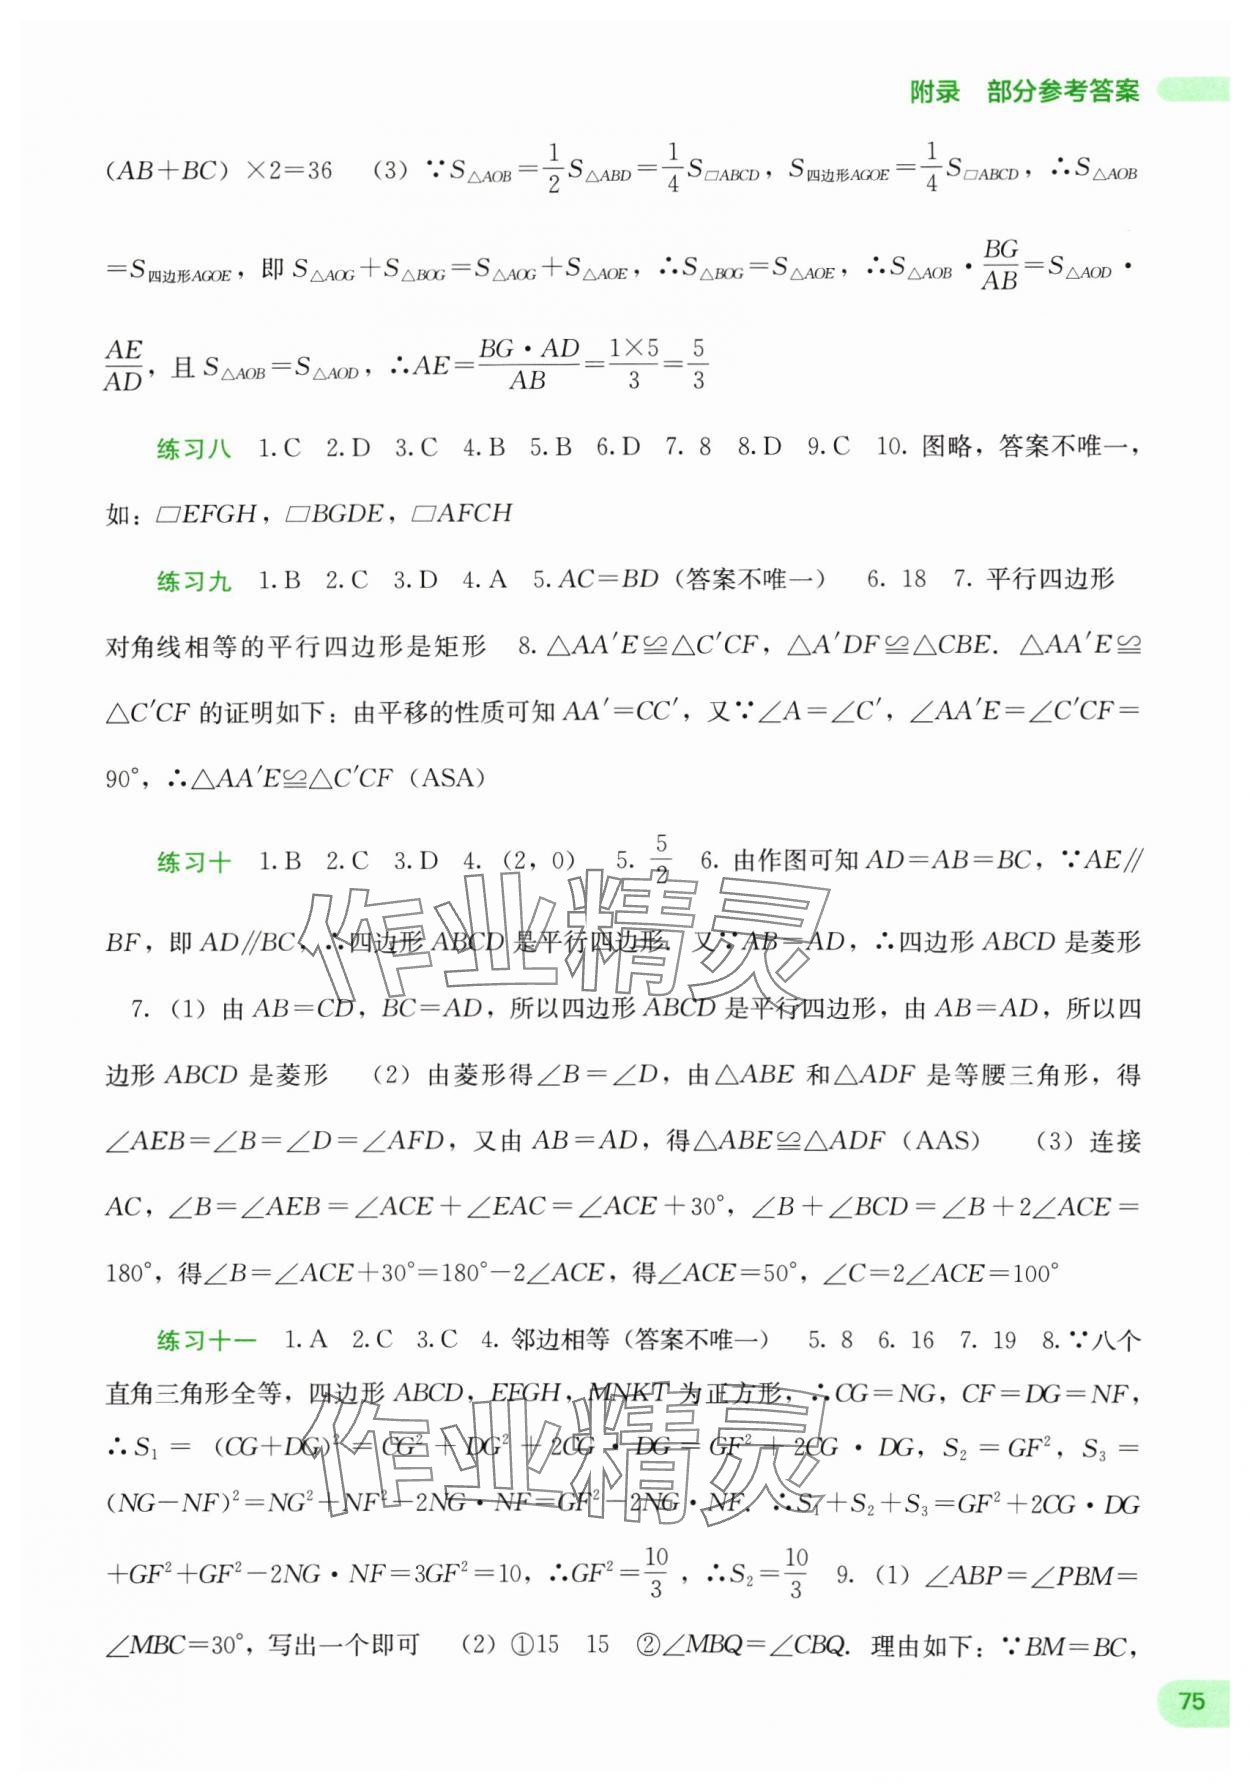 附录 部分参考答案
(AB+BC)×2=36 (3)∵S△AOB=1/2S△ABD=1/4S□ABCD，S四边形AGOE=1/4S□ABCD，∴S△AOB
=S四边形AGOE，即S△AOG+S△BOG=S△AOG+S△AOE，∴S△BOG=S△AOE，∴S△AOB·BG/AB=S△AOD·
AE/AD，且S△AOB=S△AOD，∴AE=BG·AD/AB=1×5/3=5/3
练习八 1.C 2.D 3.C 4.B 5.B 6.D 7. 8 8.D 9.C 10. 图略，答案不唯一，
如：□EFGH，□BGDE，□AFCH
练习九 1.B 2.C 3.D 4.A 5.AC=BD（答案不唯一） 6. 18 7. 平行四边形
对角线相等的平行四边形是矩形 8. △AA′E≌△C′CF，△A′DF≌△CBE. △AA′E≌
△C′CF的证明如下：由平移的性质可知AA′=CC′，又∵∠A=∠C′，∠AA′E=∠C′CF=
90°，∴△AA′E≌△C′CF（ASA）
练习十 1.B 2.C 3.D 4.（2，0） 5. 5/2 6. 由作图可知AD=AB=BC，∵AE∥
BF，即AD∥BC，∴四边形ABCD是平行四边形. 又∵AB=AD，∴四边形ABCD是菱形
7.（1）由AB=CD，BC=AD，所以四边形ABCD是平行四边形，由AB=AD，所以四
边形ABCD是菱形 （2）由菱形得∠B=∠D，由△ABE和△ADF是等腰三角形，得
∠AEB=∠B=∠D=∠AFD，又由AB=AD，得△ABE≌△ADF（AAS） （3）连接
AC，∠B=∠AEB=∠ACE+∠EAC=∠ACE+30°，∠B+∠BCD=∠B+2∠ACE=
180°，得∠B=∠ACE+30°=180°-2∠ACE，得∠ACE=50°，∠C=2∠ACE=100°
练习十一 1.A 2.C 3.C 4. 邻边相等（答案不唯一） 5. 8 6. 16 7. 19 8.∵八个
直角三角形全等，四边形ABCD，EFGH，MNKT为正方形，∴CG=NG，CF=DG=NF，
∴S₁=（CG+DG)²=CG²+DG²+2CG·DG=GF²+2CG·DG，S₂=GF²，S₃=
(NG-NF)²=NG²+NF²-2NG·NF=GF²-2NG·NF. ∴S₁+S₂+S₃=GF²+2CG·DG
+GF²+GF²-2NG·NF=3GF²=10，∴GF²=10/3，∴S₂=10/3 9.（1）∠ABP=∠PBM=
∠MBC=30°，写出一个即可 （2）①15 15 ②∠MBQ=∠CBQ. 理由如下：∵BM=BC，
75
作业精灵
作业精灵